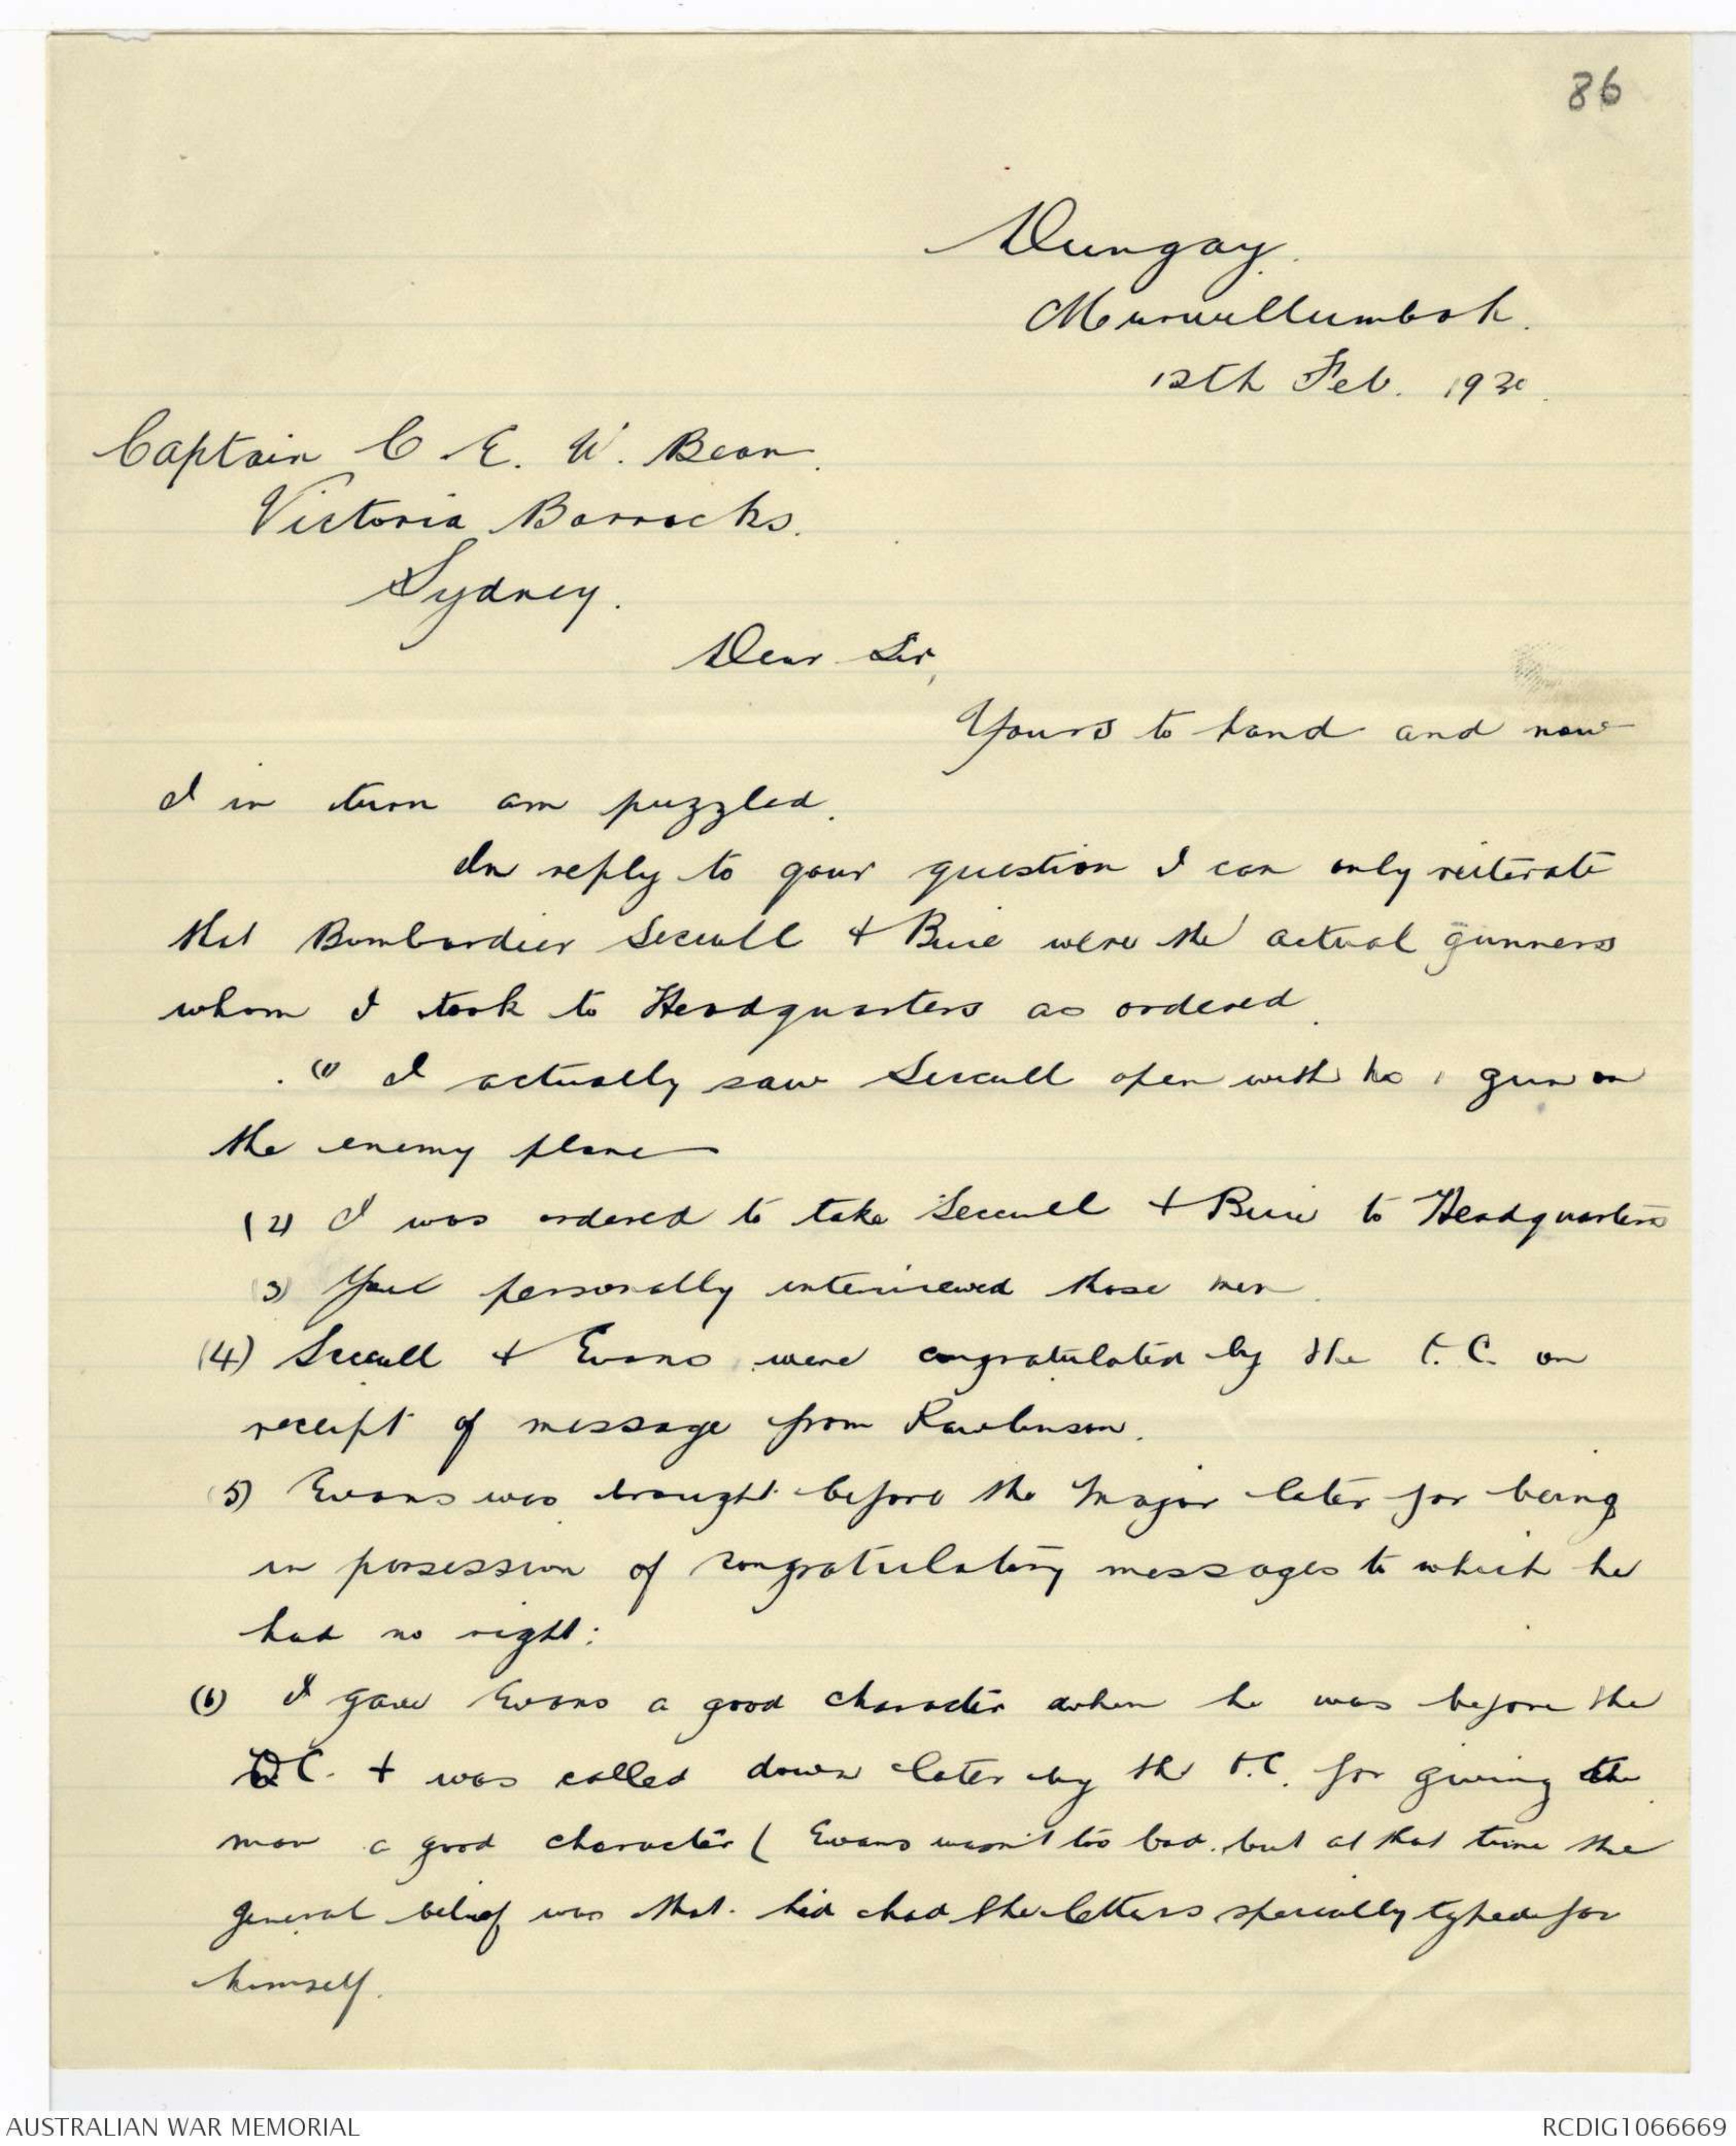 86
Dungay.
Murwullumbah.
12th Feb. 1930.
Captain C. E. W. Bean.
Victoria Barracks.
Sydney.
Dear Sir,
Yours to hand and now
I in turn am puzzled.
In reply to your question I can only reiterate
that Bombardier Seccull & Buie were the actual gunners
whom I took to Headquarters as ordered.
(1) I actually saw Seccull open with No 1 gun on
the enemy plane
(2) I was ordered to take Seccull & Buie to Headquarters
(3) You personally interviewed those men.
(4) Seccull & Evans were congratulated by the O.C. on
receipt of message from Rawlinson.
(5) Evans was brought before the Major later for being
in possession of congratulatory messages to which he
had no right:
(6) I gave Evans a good character when he was before the
O.C. & was called down later by the O.C. for giving the
man a good character ( Evans wasn't too bad. but at that time the
general belief was that. he'd had the letters specially typed for
himself.
AUSTRALIAN WAR MEMORIAL
RCDIG1066669